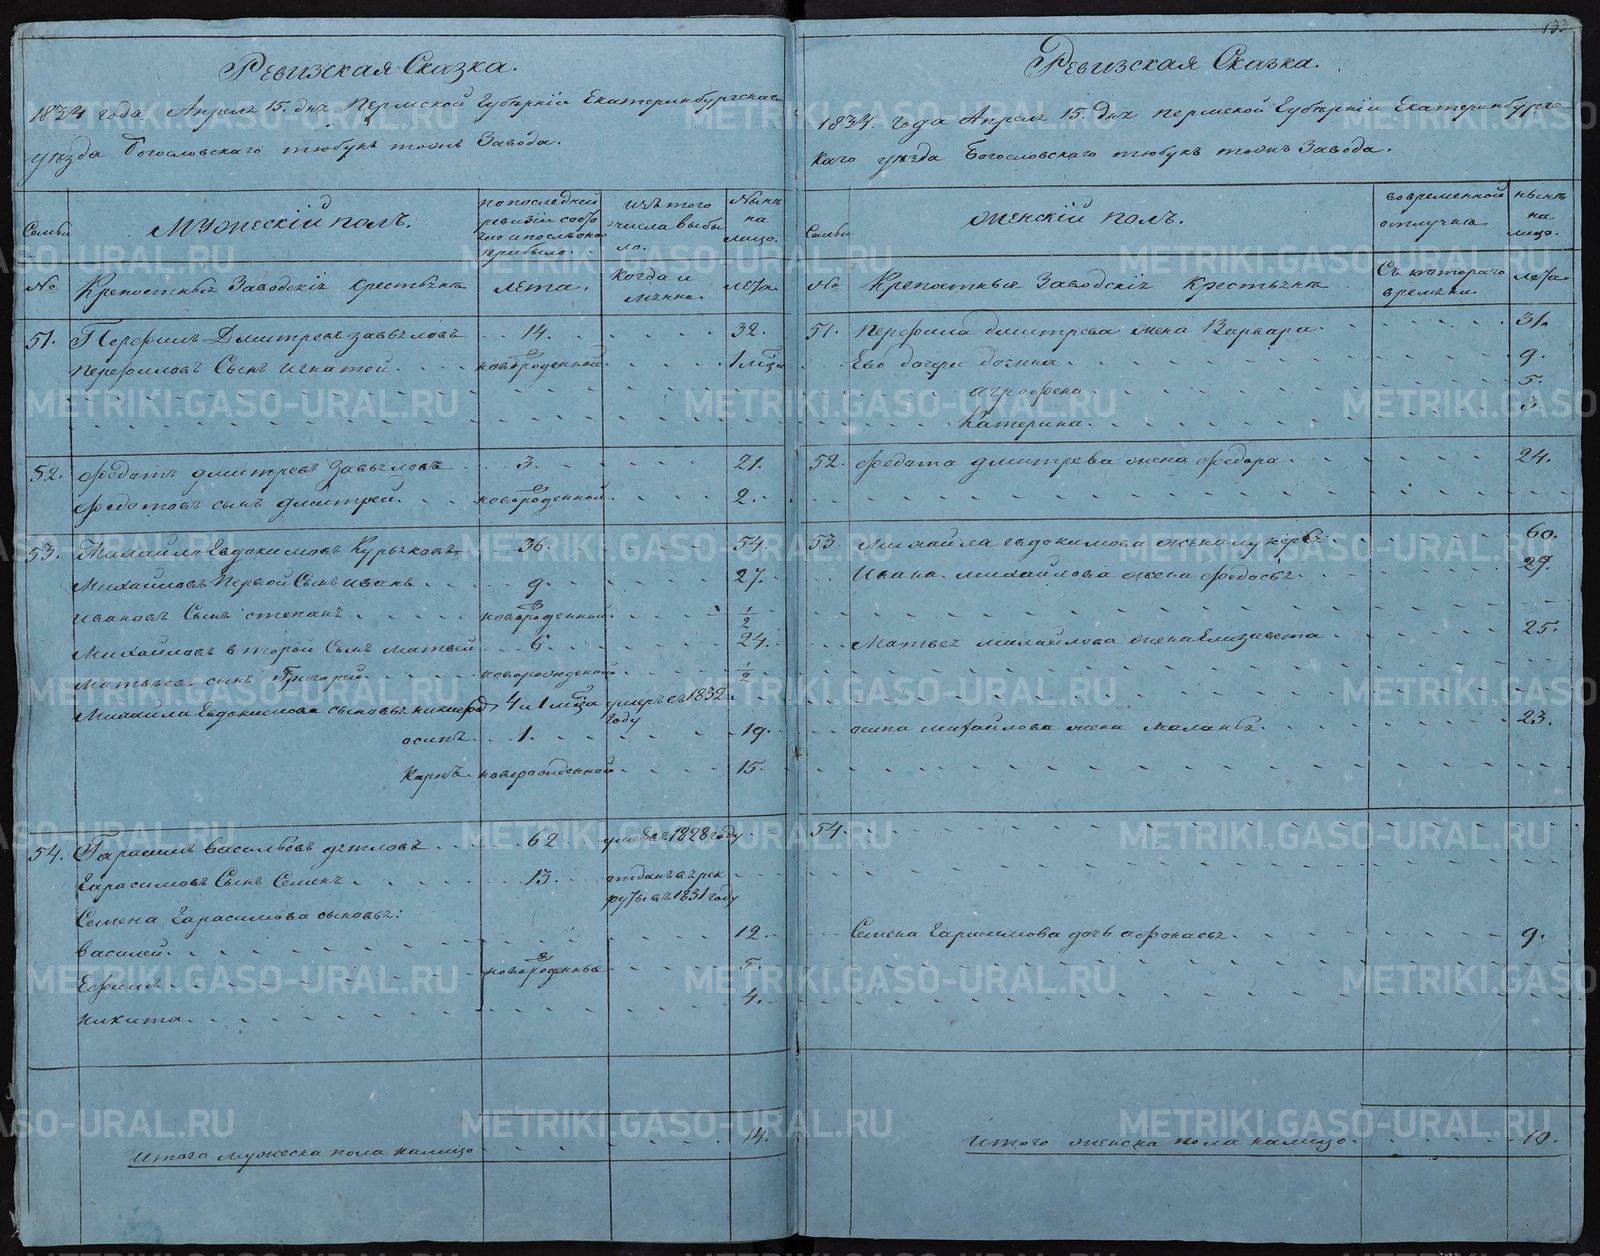 133
Ревизская Сказка.
1834 года Апреля 15. дня Пермской Губѣрніи Екатеринбургскаго
уѣзда Богословскаго тюбукъ тожъ Завода.
Семьи
Мужескій полъ.
по последней ревизіи состояло и после оной прибыло.
изъ того числа выбыло.
Нынѣ на лицо.
№
Крепостныя Заводскія Крестьяна
лѣта.
Когда и мянно.
лета.
51. Перфилъ Дмитревъ завьяловъ 14. 32.
Перфиловъ Сынъ игнатей новороденной 1 мѣца
52. федотъ дмитревъ Завьяловъ 3. 21.
федотовъ сынъ дмитрей новороденной 2.
53. Михайло Евдокимовъ Курочковъ 36. 54.
Михайловъ Первой Сынъ иванъ 9. 27.
ивановъ Сынъ степанъ новороденной 1/2
Михайловъ второй Сынъ матвей 6. 24.
матвѣевъ сынъ Григорей новорожденной 1/2
Михайла Евдокимова сыновья никифоръ 4 и 1 мѣца умеръ въ 1832 году
осипъ 1. 19.
Карпъ новорожденной 15.
54. Гарасимъ васильевъ дѣтловъ 62 умеръ въ 1828 году
Гарасимовъ Сынъ Семенъ 13. отданъ въ рекруты въ 1831 году
Семена Гарасимова сыновья:
василей 12.
Ефимъ новороденныя 5.
никита 4.
Итого мужеска пола налицо 14.
Ревизская Сказка.
1834. года Апреля 15. дня пермской Губѣрніи Екатеринбургс-
каго уѣзда Богословскаго тюбукъ тожъ Завода.
Семьи
женскій полъ.
во временной отлучкѣ.
нынѣ на лицо.
№
Крепостныя Заводскія Крестьяна
Съ котораго времени.
лета.
51. перфила дмитрева жена Варвара 31.
Ево дочери 9.
агрофена 5.
Катерина 3.
52. федота дмитрева жена федора 24.
53. Михайла евдокимова жена лукерья 60.
Ивана михайлова жена федосья 29.
Матвея михайлова жена Елизавета 25.
осипа михайлова жена маланья 23.
54.
Семена Гарасимова дочь афонасья 9.
Итого женска пола налицо 10.
METRIKI.GASO-URAL.RU